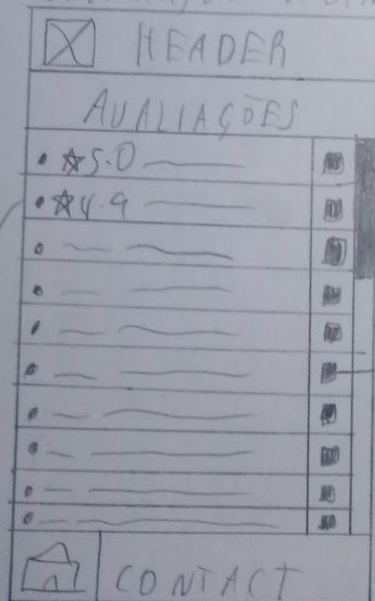 HEADER
AVALIAÇÕES
• ☆ 5.0
• ☆ 4.9
CONTACT